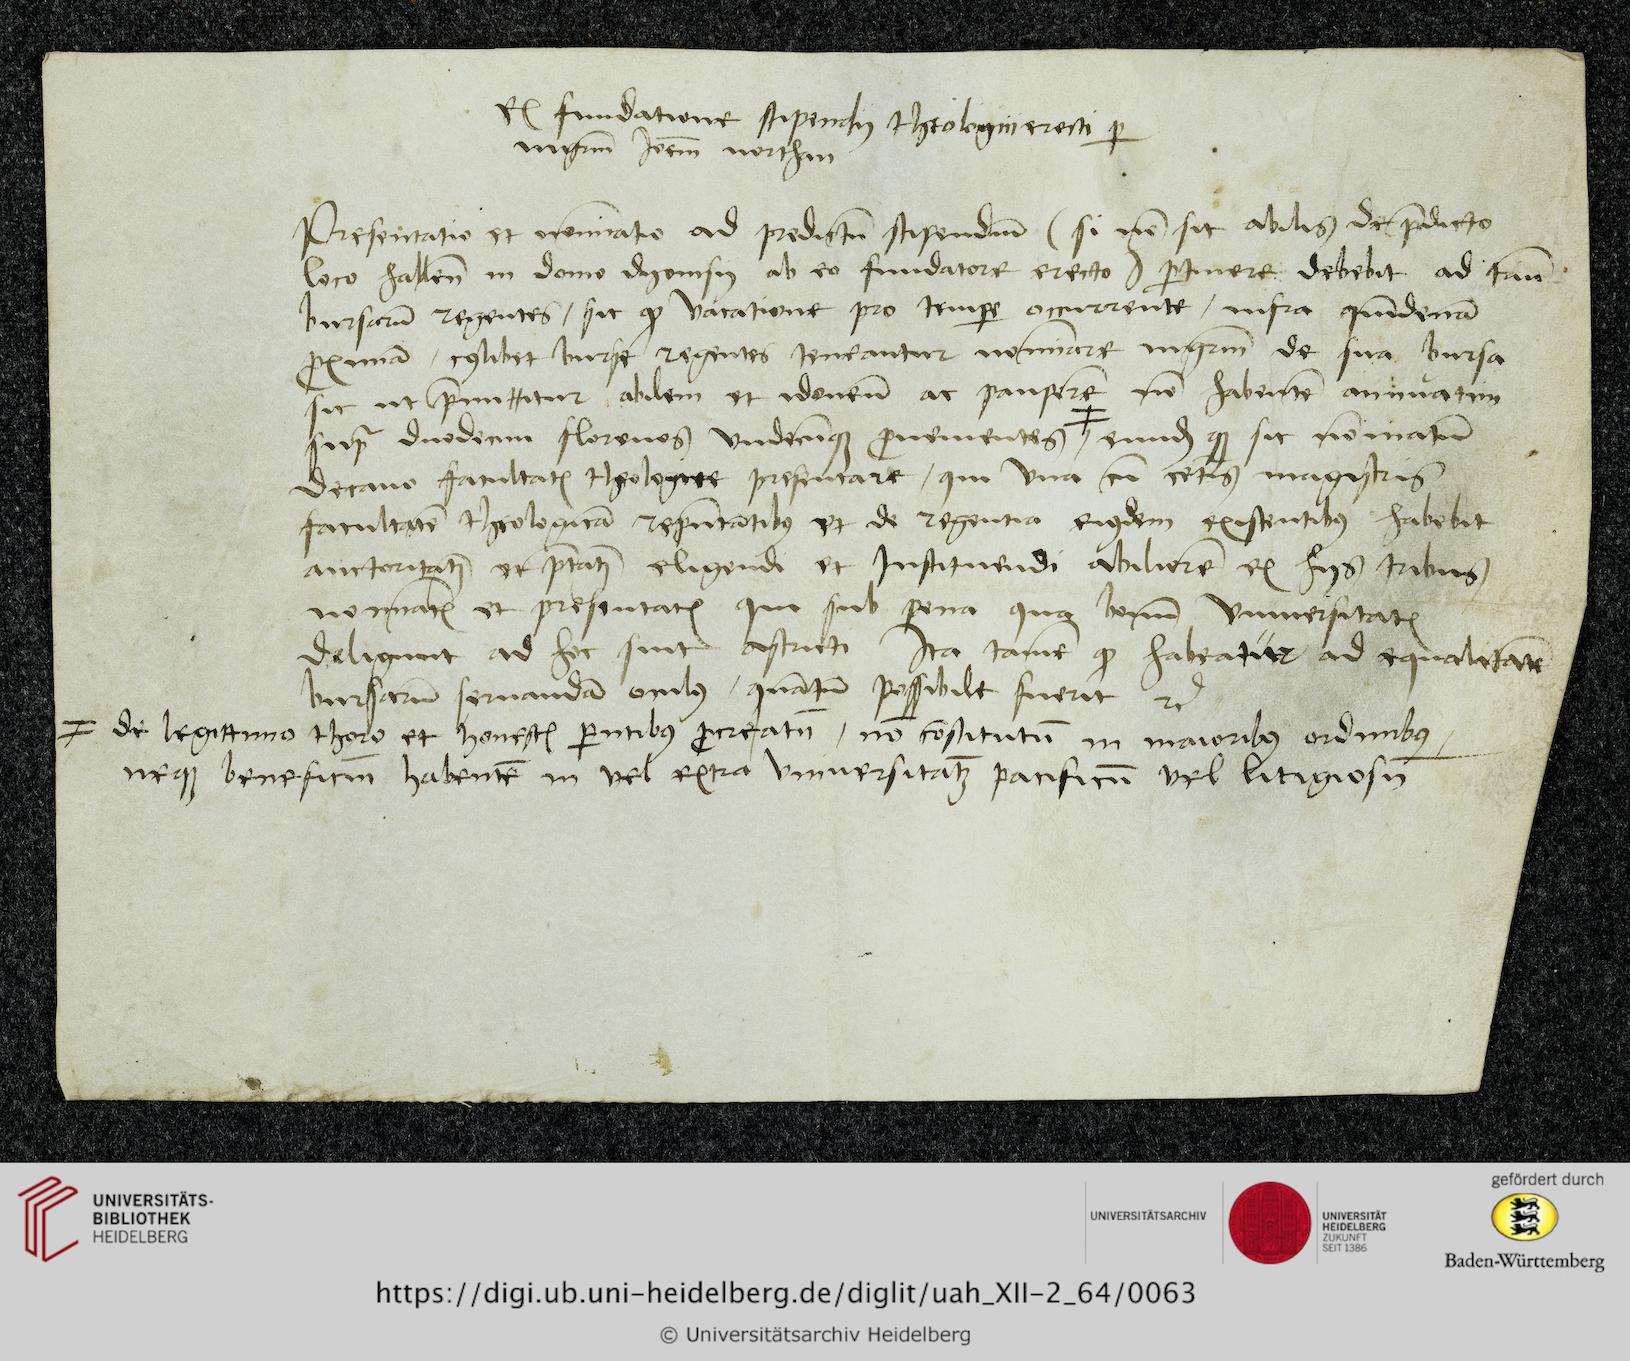 ex fundatione stipendij theologici erecti p
mgrm Joem northan
Presentatio et nominatio ad predictu stipendiu ( si no sit abilis de predicto
loco hallen in domo dyonisij ab eo fundatore erecto ) ptinere debebit ad triu
bursaru regentes / sic qp vacatione pro tempe occurrente / infra quindena
proxima / cuiuslibet burse regentes teneantur nominare mgrm de sua bursa
sic ut pmittitur abilem et idoneu ac paupere no habente annuatim
supra duodecim florenos undecunque pvenientes ‡ / eundem que sic nominatu
decano facultatis theologice presentare / qui una cu ceteris magistris
facultate theologica representantibus et de regentia eiusdem existentibus habebit
auctoritate et ptate eligendi et Instituendi abiliore ex hijs tribus
nominatis et presentatis qui sub pena qua bonu universitatis
deligunt ad hoc sint astricti Ita tame qp habeatur ad equalitate
bursaru servanda oculus / quantu possibile fuerit rc
‡ de legittimo thoro et honestis parentibus pcreatu / no constitutu in maioribus ordinibus /
neque beneficiu habente in vel extra universitate pacificu vel litigiosu
UNIVERSITÄTS-
BIBLIOTHEK
HEIDELBERG
UNIVERSITÄTSARCHIV
UNIVERSITÄT
HEIDELBERG
ZUKUNFT
SEIT 1386
gefördert durch
Baden-Württemberg
https://digi.ub.uni-heidelberg.de/diglit/uah_XII-2_64/0063
© Universitätsarchiv Heidelberg